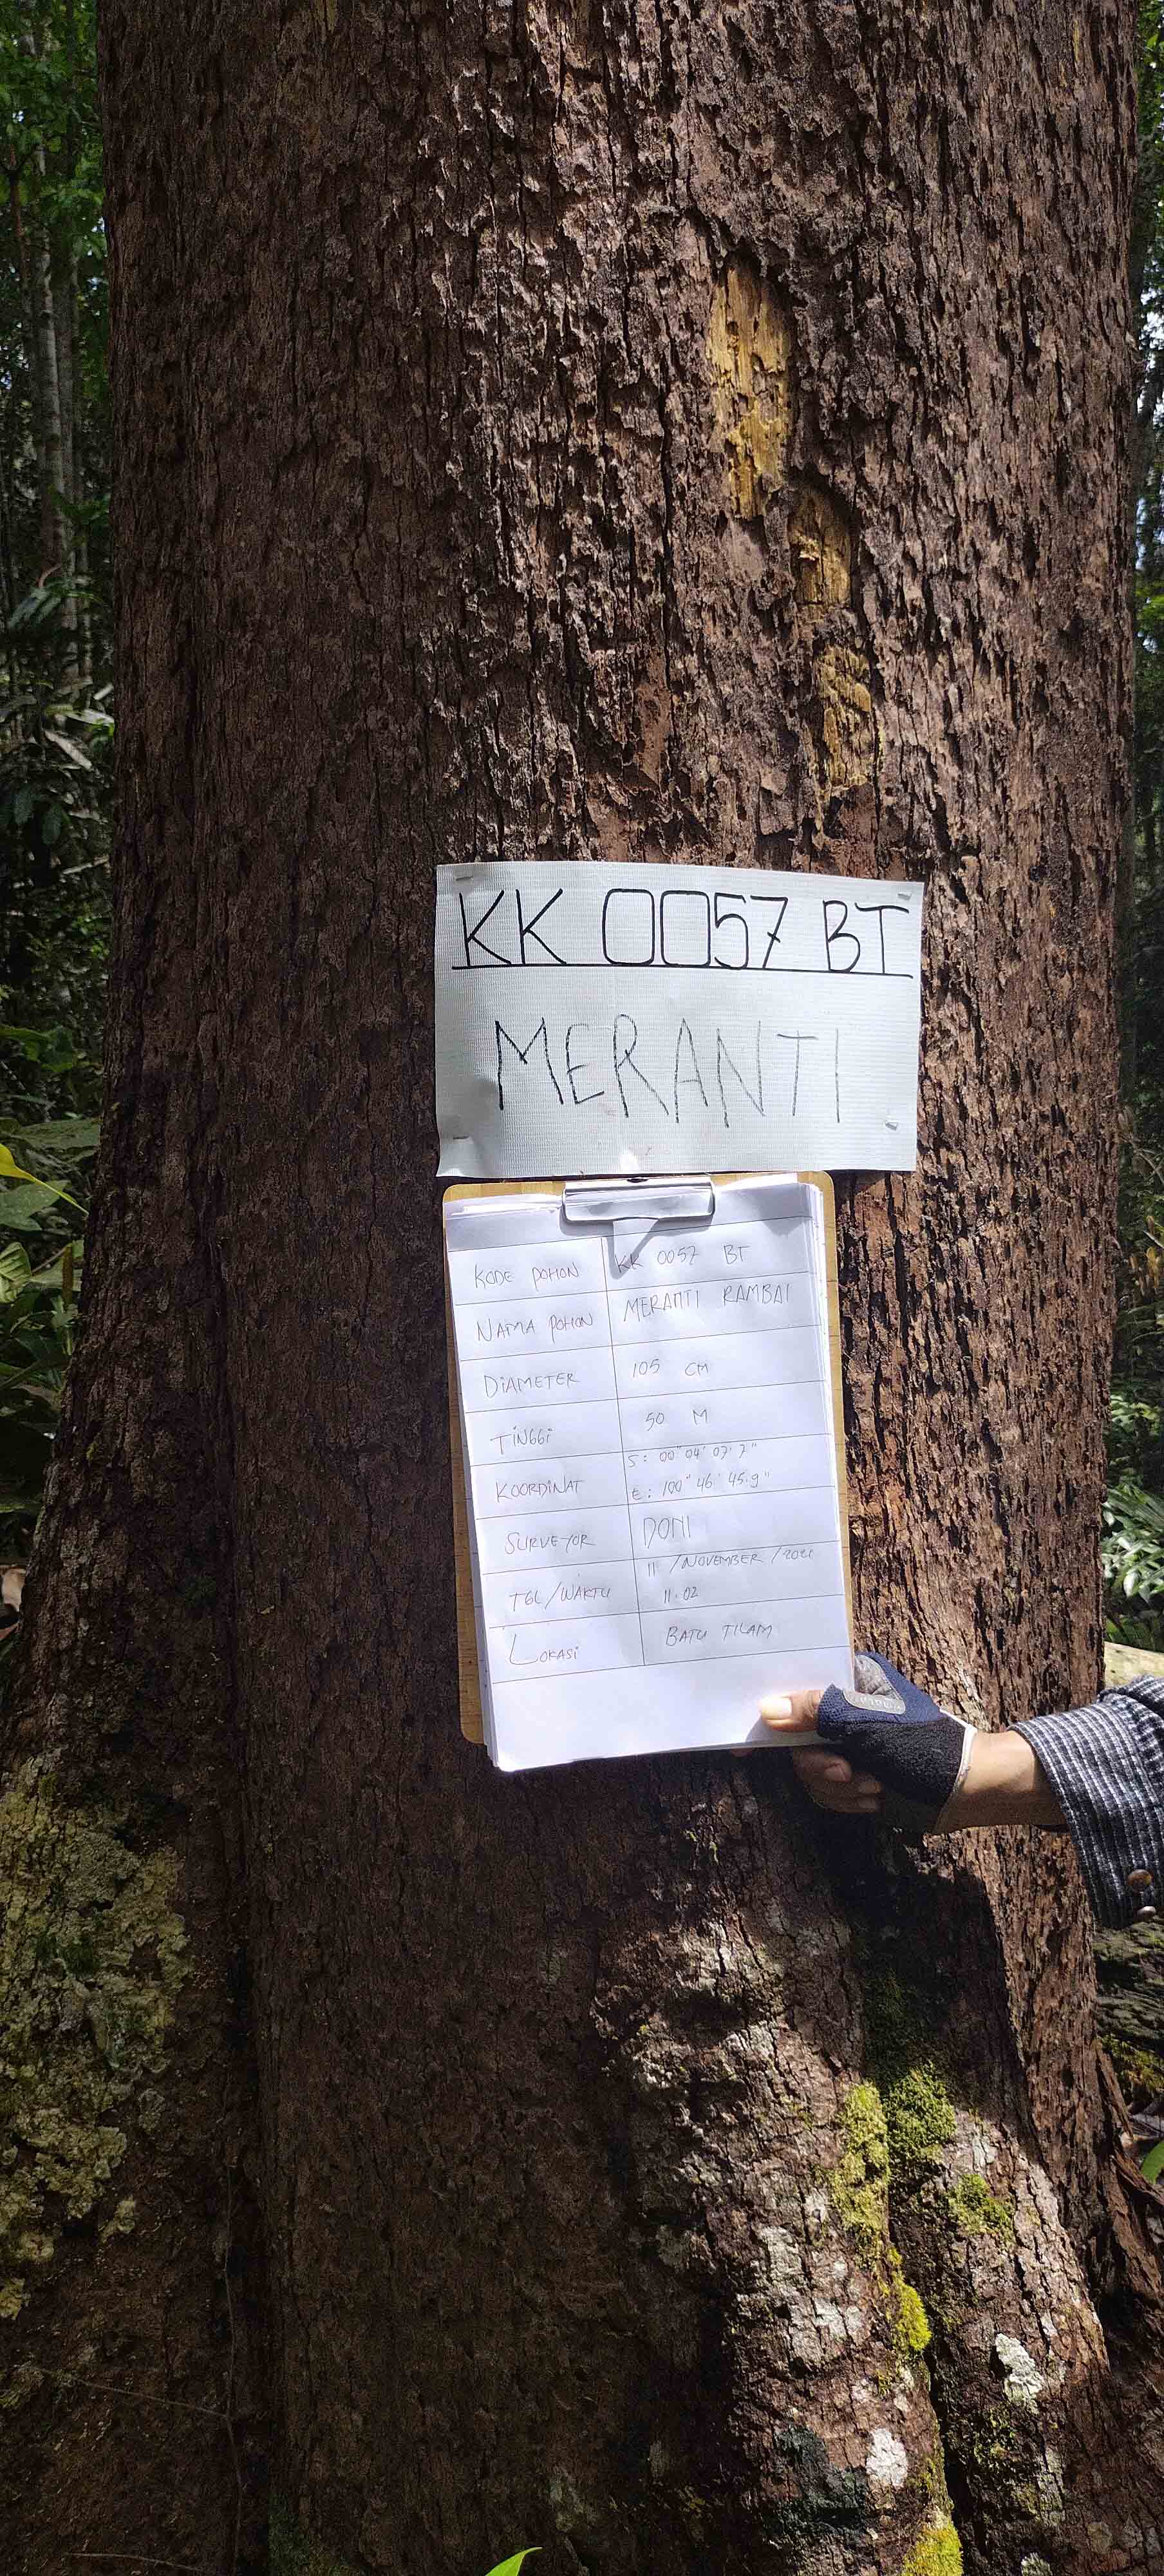 KK 0057 BT
MERANTI
KODE POHON KK 0057 BT
NAMA POHON MERANTI RAMBAI
DIAMETER 105 CM
TINGGI 50 M
KOORDINAT S: 00" 04' 07.7"
E: 100" 46' 45.9"
SURVEYOR DONI
TGL/WAKTU 11 /NOVEMBER /2021
11.02
LOKASI BATU TILAM